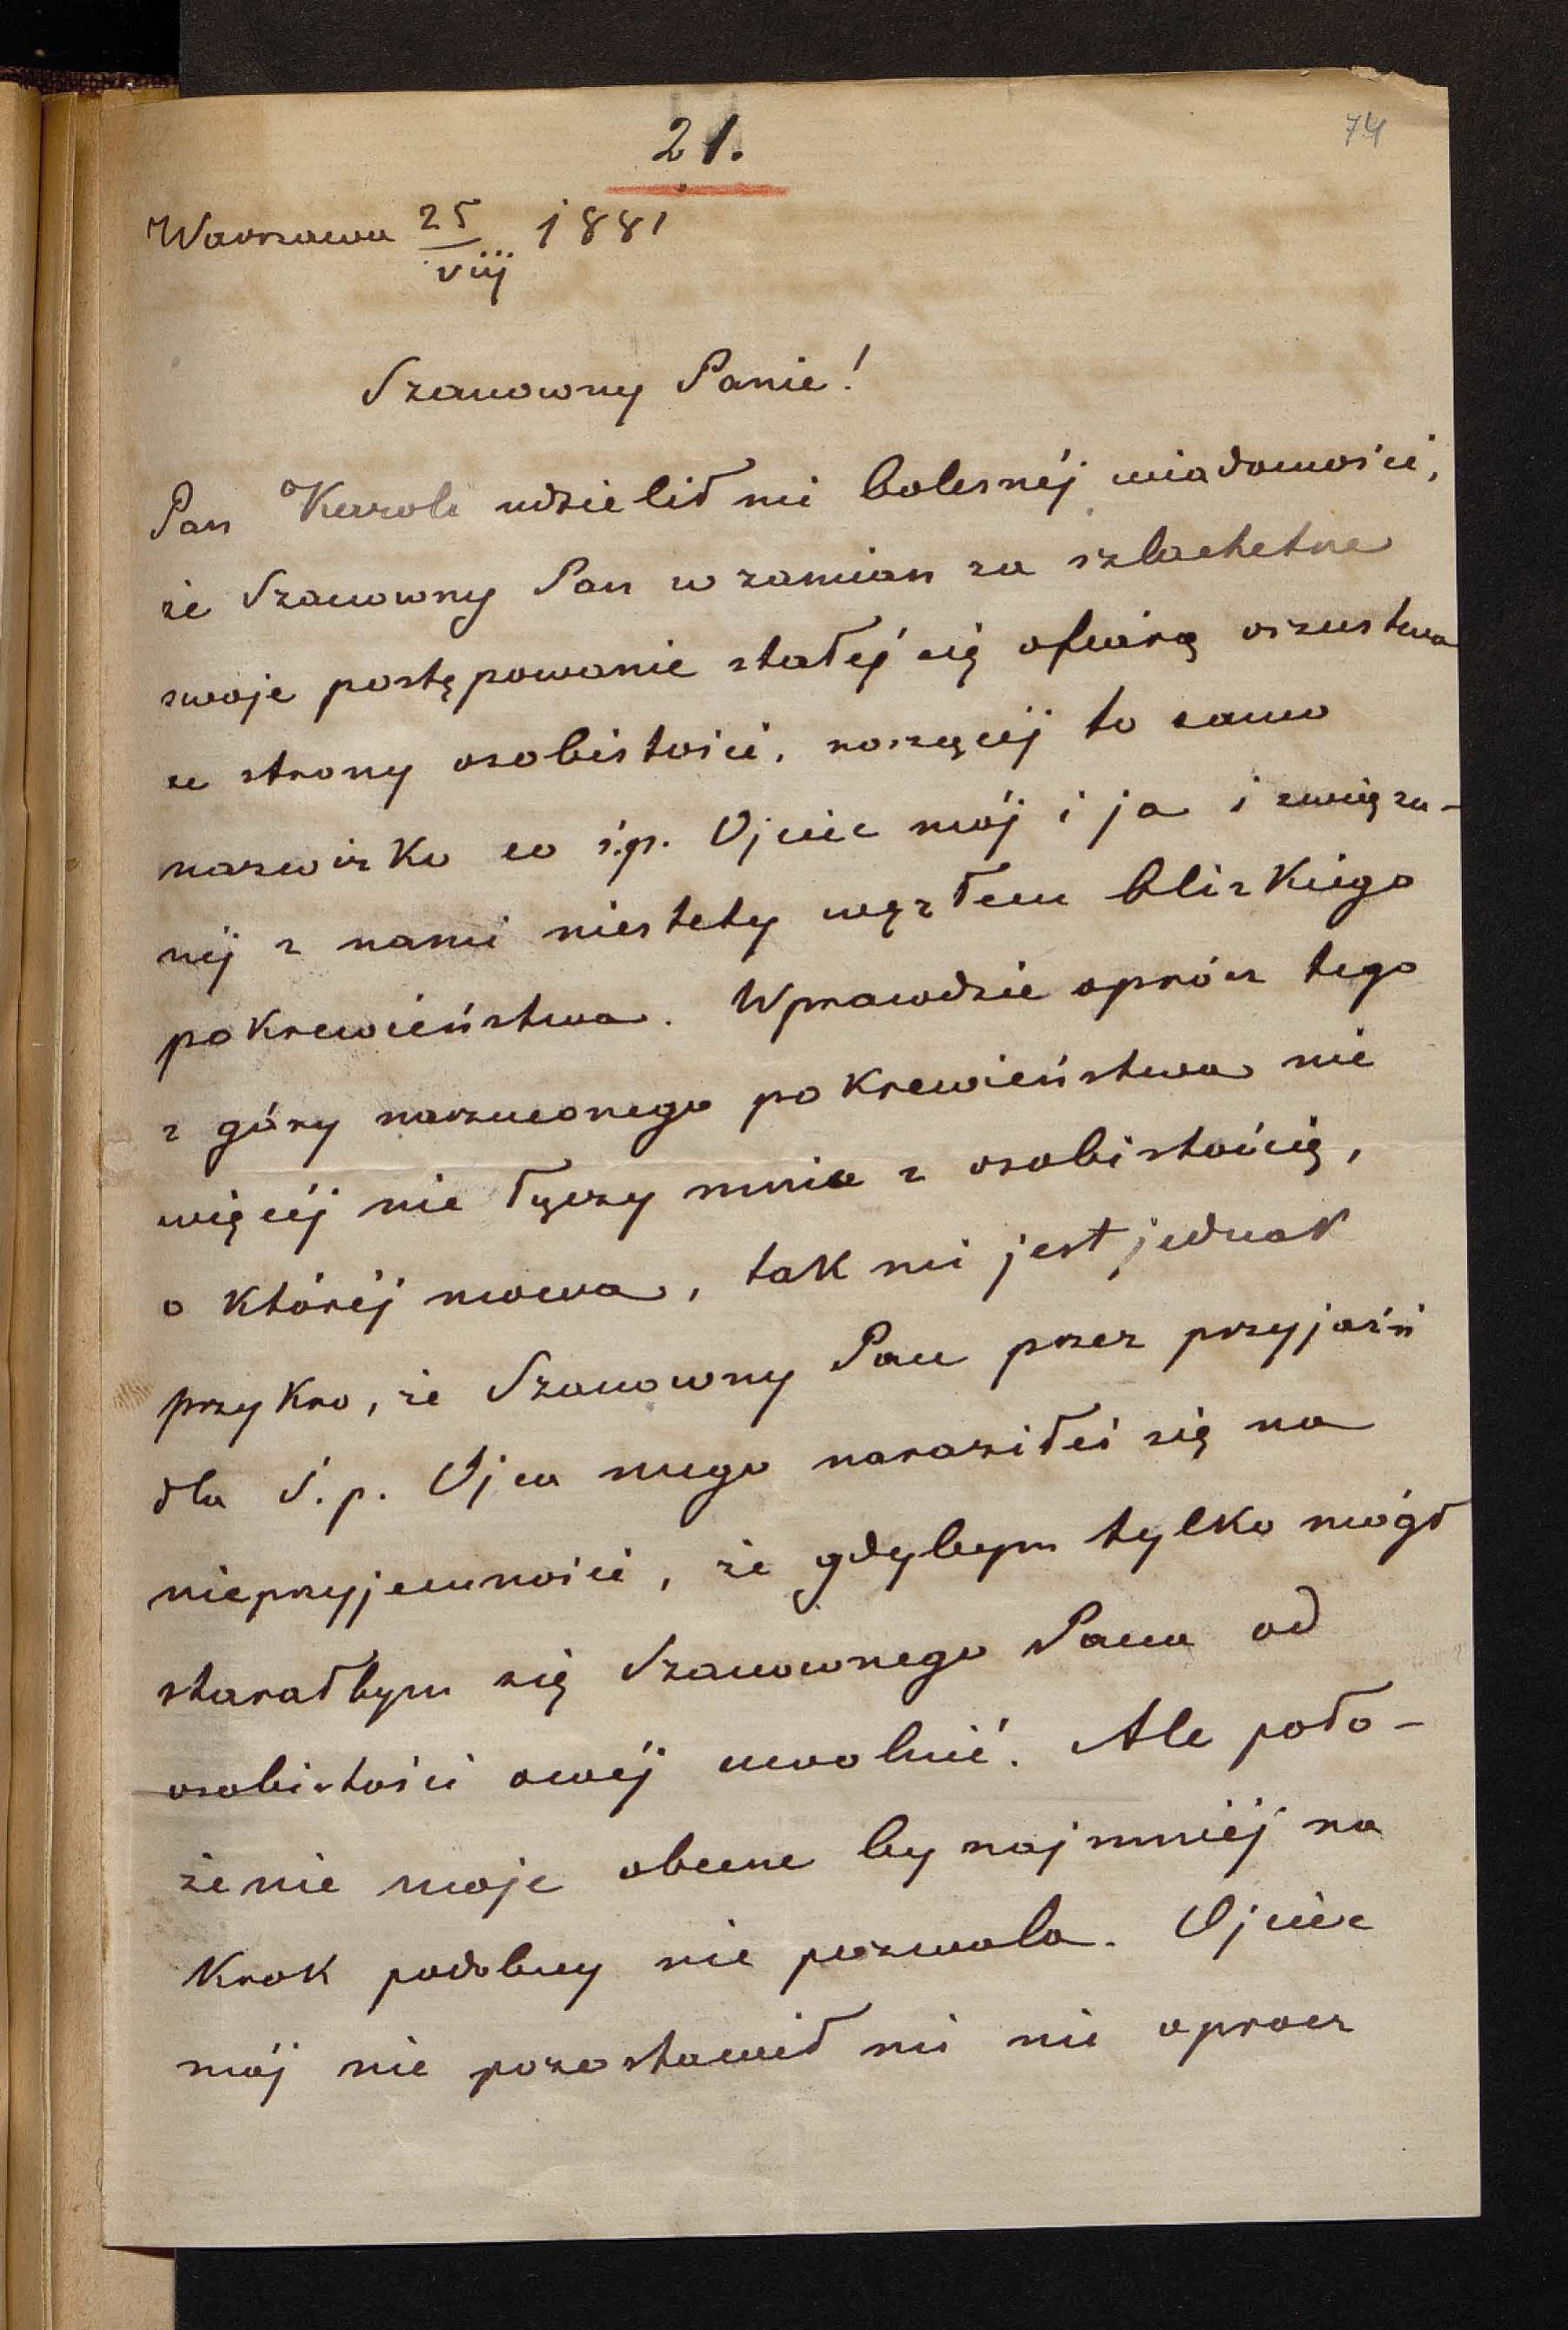 21.
74
Warszawa 25/viij 1881
Szanowny Panie!
Pan Karol udzielił mi bolesnéj wiadomości,
że Szanowny Pan w zamian za szlachetne
swoje postępowanie stałeś się ofiarą oszustwa
ze strony osobistości, noszącéj to samo
nazwisko co ś.p. Ojciec mój i ja i związa-
néj z nami niestety węzłem blizkiego
pokrewieństwa. Wprawdzie oprócz tego
z góry narzuconego pokrewieństwa nic
więcéj nie łączy mnie z osobistością,
o któréj mowa, tak mi jest jednak
przykro, że Szanowny Pan przez przyjaźń
dla ś.p. Ojca mego naraziłeś się na
nieprzyjemności, że gdybym tylko mógł
starałbym się Szanownego Pana od
osobistości owéj uwolnić. Ale poło-
żenie moje obecne bynajmniéj na
krok podobny nie pozwala. Ojciec
mój nie pozostawił mi nic oprocz